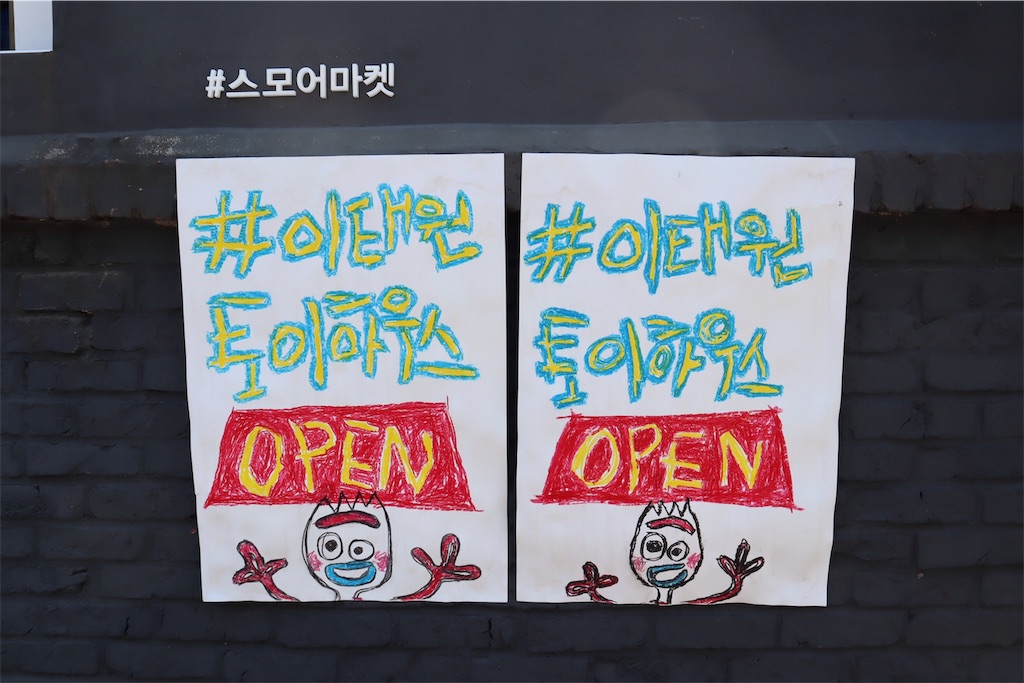 #스모어마켓
#이태원
토이하우스
OPEN
#이태원
토이하우스
OPEN